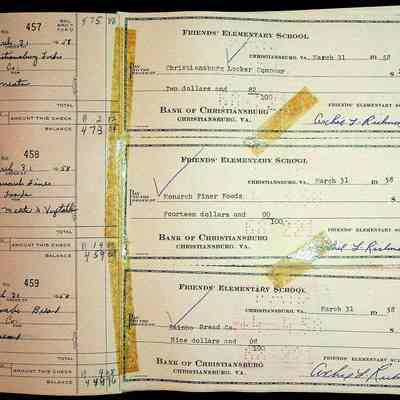 457
BAL. BRO'T FOR'D
475
March 31 1958
Christiansburg Locker
Co.
meats
TOTAL
AMOUNT THIS CHECK
2 82
BALANCE
473
FRIENDS' ELEMENTARY SCHOOL
CHRISTIANSBURG, VA. March 31 1958
PAY TO THE ORDER OF Christiansburg Locker Company $
Two dollars and 82/100
BANK OF CHRISTIANSBURG
CHRISTIANSBURG, VA.
FRIENDS' ELEMENTARY SCHOOL
458
March 31 1958
Monarch Finer
Foods
meats & Vegetables
TOTAL
AMOUNT THIS CHECK
14 00
BALANCE
459
FRIENDS' ELEMENTARY SCHOOL
CHRISTIANSBURG, VA. March 31 1958
PAY TO THE ORDER OF Monarch Finer Foods $
Fourteen dollars and 00/100
BANK OF CHRISTIANSBURG
CHRISTIANSBURG, VA.
FRIENDS' ELEMENTARY SCHOOL
459
March 31 1958
Bread
Co.
bread
TOTAL
AMOUNT THIS CHECK
BALANCE
FRIENDS' ELEMENTARY SCHOOL
CHRISTIANSBURG, VA. March 31 1958
PAY TO THE ORDER OF Bread Co. $
Nine dollars and 08
BANK OF CHRISTIANSBURG
CHRISTIANSBURG, VA.
FRIENDS' ELEMENTARY SCHOOL